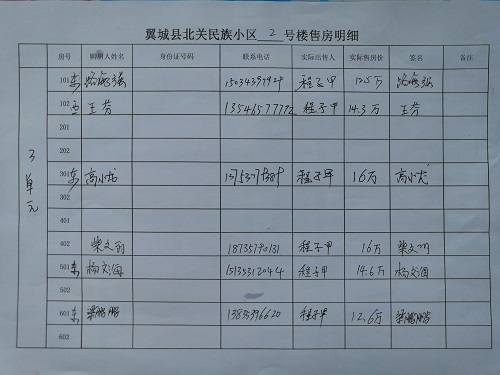 翼城县北关民族小区 2 号楼售房明细
房号 购房人姓名 身份证号码 联系电话 实际出售人 实际售房价 签名 备注
3单元
101 东 程子甲 12.5万
102 西 王芳 13546577772 程子甲 14.3万 王芳
201
202
301 东 高小龙 程子甲 16万 高小龙
302
401
402 柴文 18735790131 程子甲 16万 柴文
501 东 杨文海 15135312044 程子甲 14.6万 杨文海
502
601 东 梁鹏鹏 13835396620 程子甲 12.6万 梁鹏鹏
602